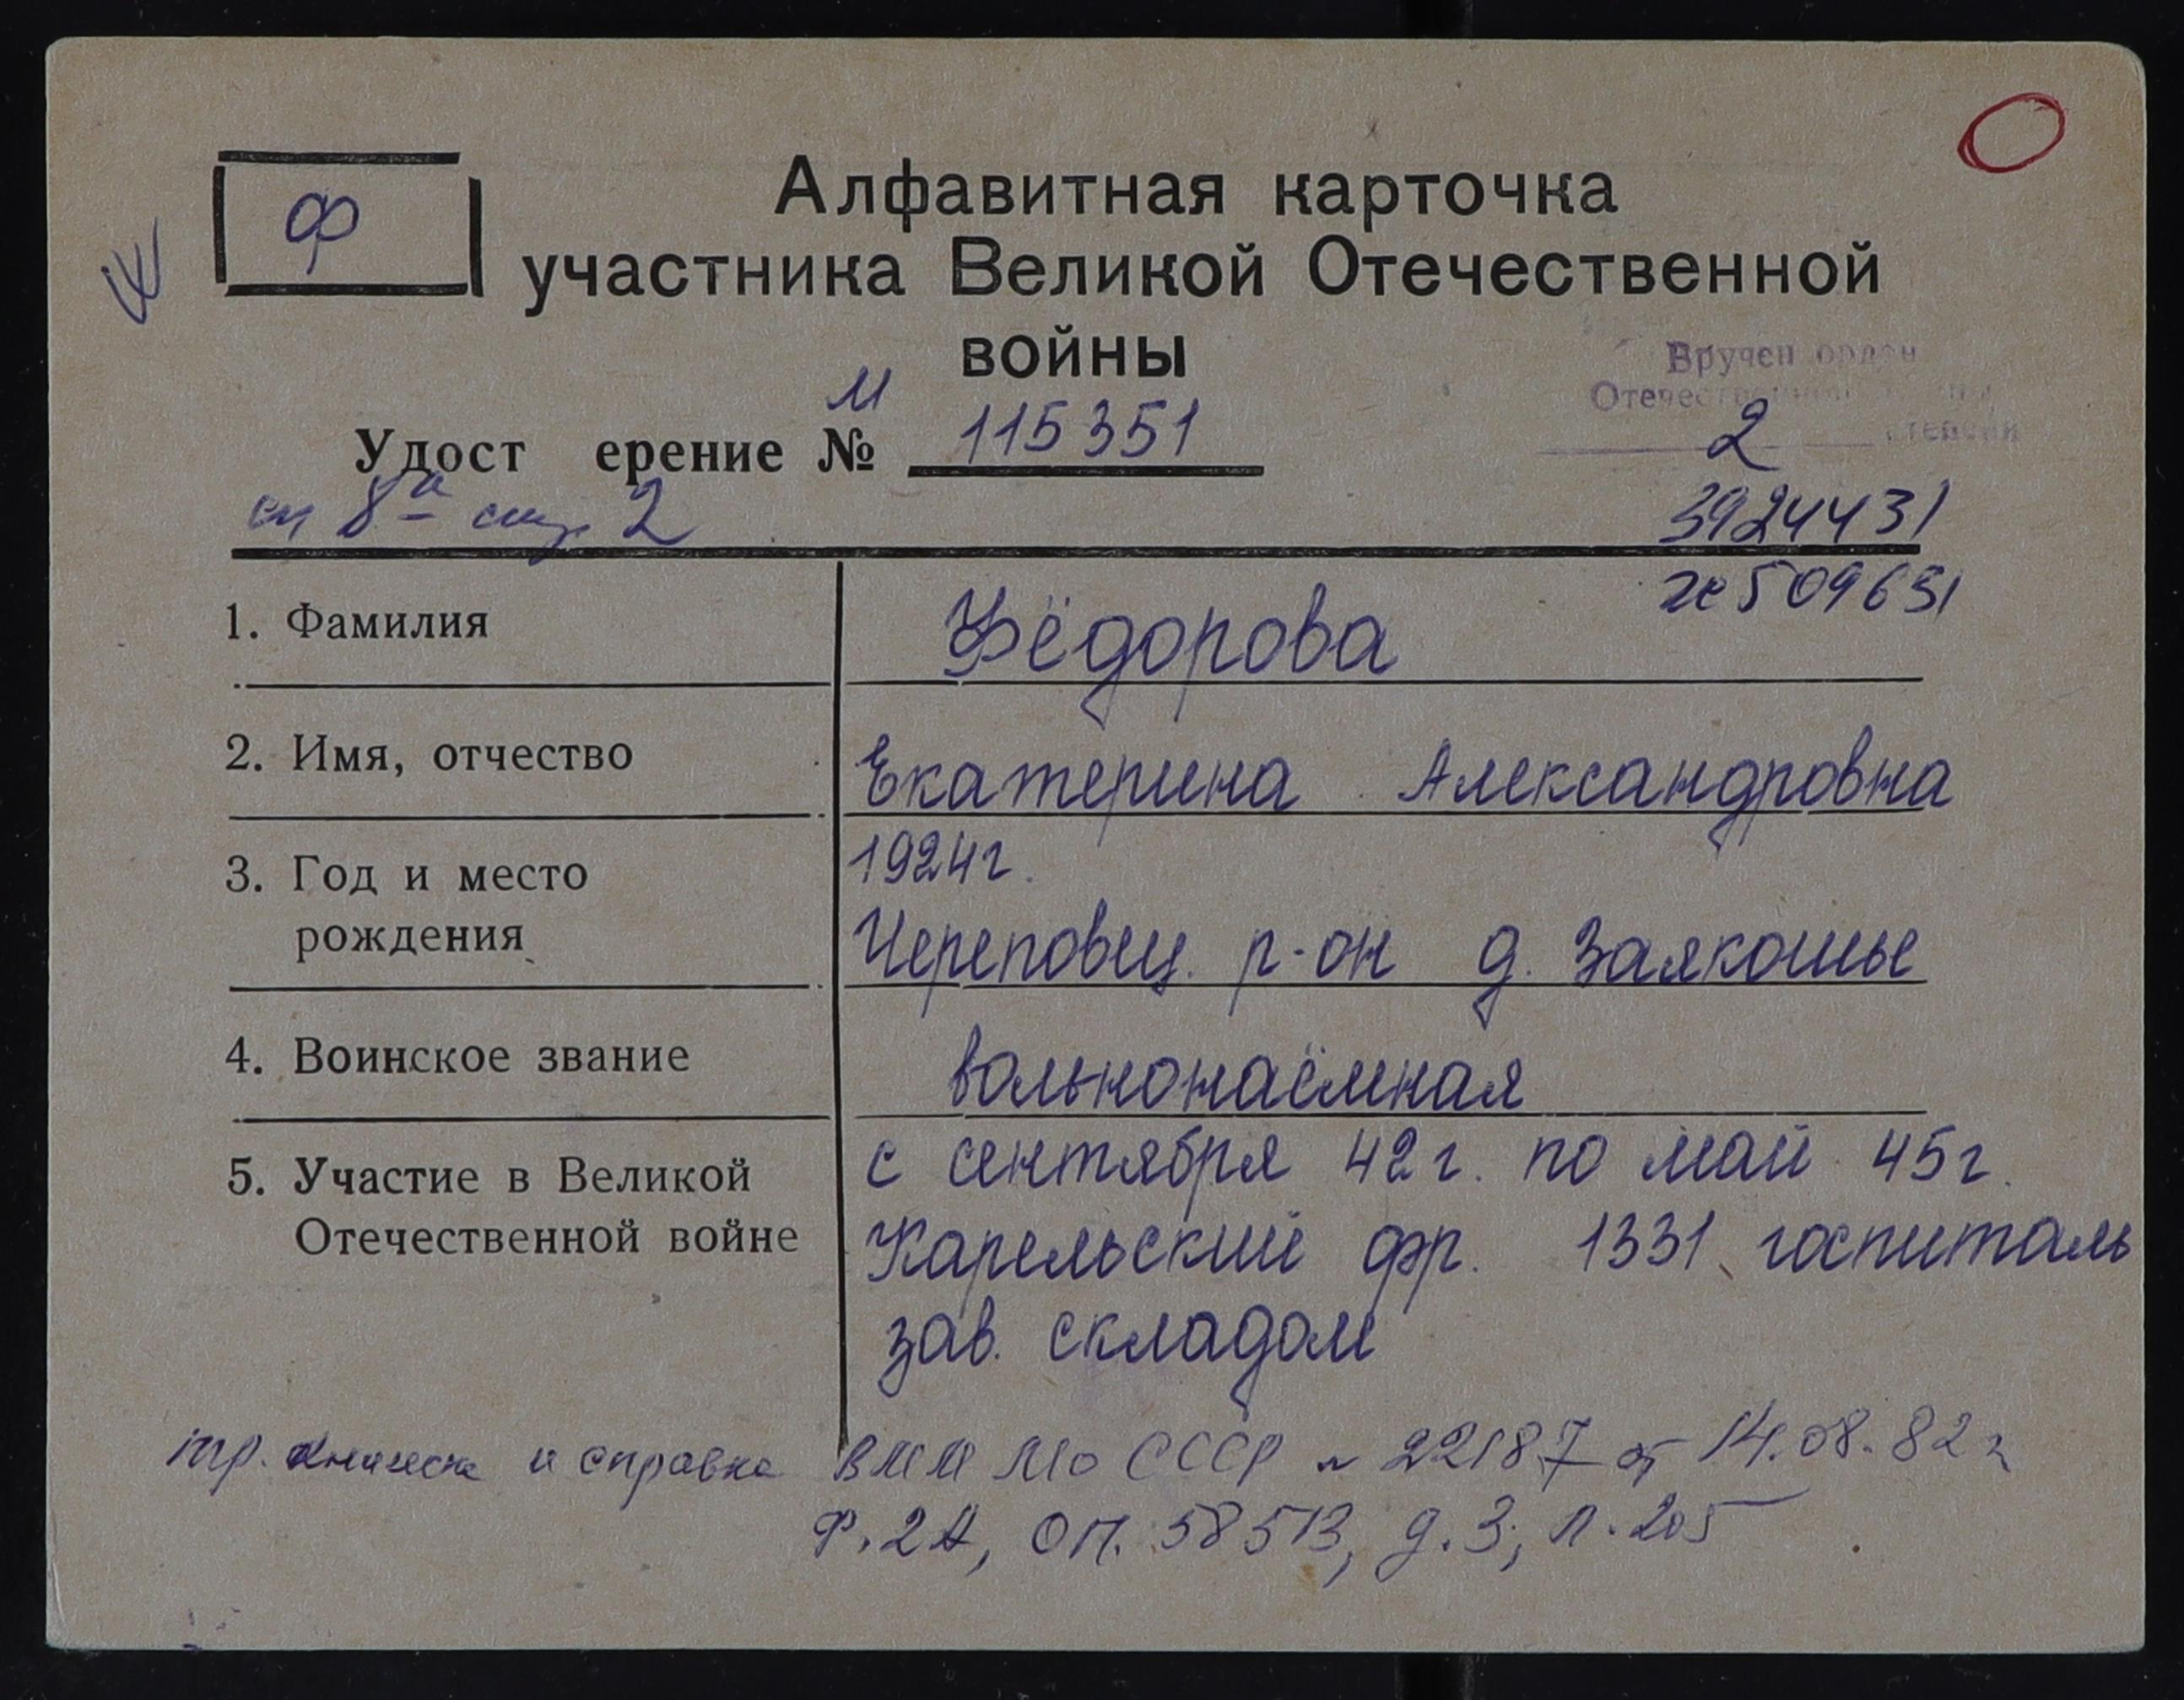 Ф
Алфавитная карточка
участника Великой Отечественной
войны
Вручен орден
Отечественной войны
2 степени
М
Удост ерение № 115351
3924431
1. Фамилия Фёдорова
2. Имя, отчество Екатерина Александровна
3. Год и место рождения 1924г.
Череповец. р-он д. Заякошье
4. Воинское звание вольнонаёмная
5. Участие в Великой Отечественной войне с сентября 42г. по май 45г.
Карельский фр. 1331 госпиталь
зав. складом
тр. книжка и справка ВММ МО СССР № 22187 от 14.08.82г
Ф.2А, оп. 58513, д.3, л.205